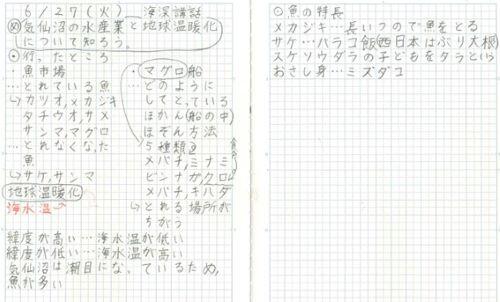 6/27(火) 海深講話
め 気仙沼の水産業と地球温暖化
について知ろう。
◎行ったところ
・魚市場
…とれている魚
↳カツオ,メカジキ
タチウオ,サメ
サンマ,マグロ
…とれなくなった
魚
↳サケ,サンマ
地球温暖化
海水温↗
・マグロ船
…どのように
してとっている
ほかん(船の中)
ほぞん方法
5種類
メバチ,ミナミ
ビンナガ,クロ
メバチ,キハダ
↳とれる場所が
ちがう
緯度が高い…海水温が低い
緯度が低い…海水温が高い
気仙沼は潮目になっているため,
魚が多い
◎魚の特長
メカジキ…長いつので魚をとる
サケ…ハラコ飯(西日本はぶり大根)
スケソウダラの子どもをタラという
おさし身…ミズダコ